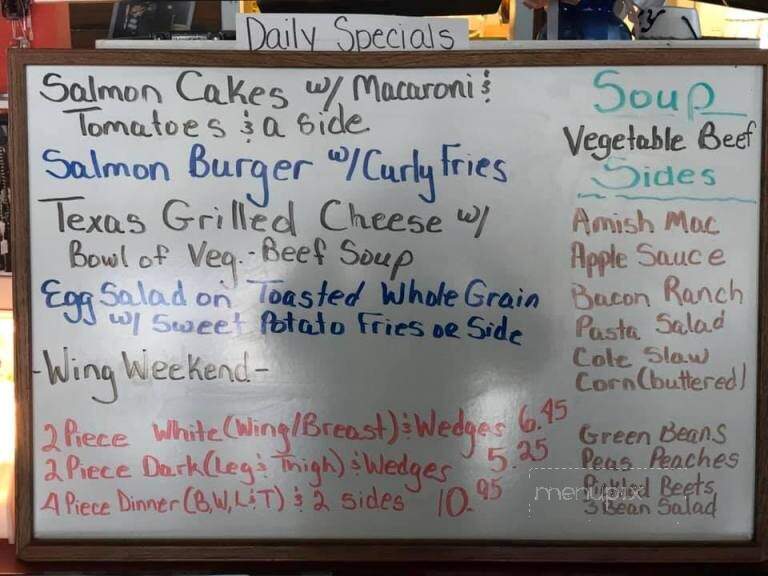 Daily Specials
Salmon Cakes w/ Macaroni &
Tomatoes & a Side
Salmon Burger w/ Curly Fries
Texas Grilled Cheese w/
Bowl of Veg.-Beef Soup
Egg Salad on Toasted Whole Grain
w/ Sweet Potato Fries or Side
-Wing Weekend-
2 Piece White (Wing/Breast) & Wedges 6.45
2 Piece Dark (Leg & Thigh) & Wedges 5.25
4 Piece Dinner (B,W,L&T) & 2 sides 10.95
Soup
Vegetable Beef
Sides
Amish Mac
Apple Sauce
Bacon Ranch
Pasta Salad
Cole Slaw
Corn (buttered)
Green Beans
Peas Peaches
Pickled Beets
3 Bean Salad
menupix